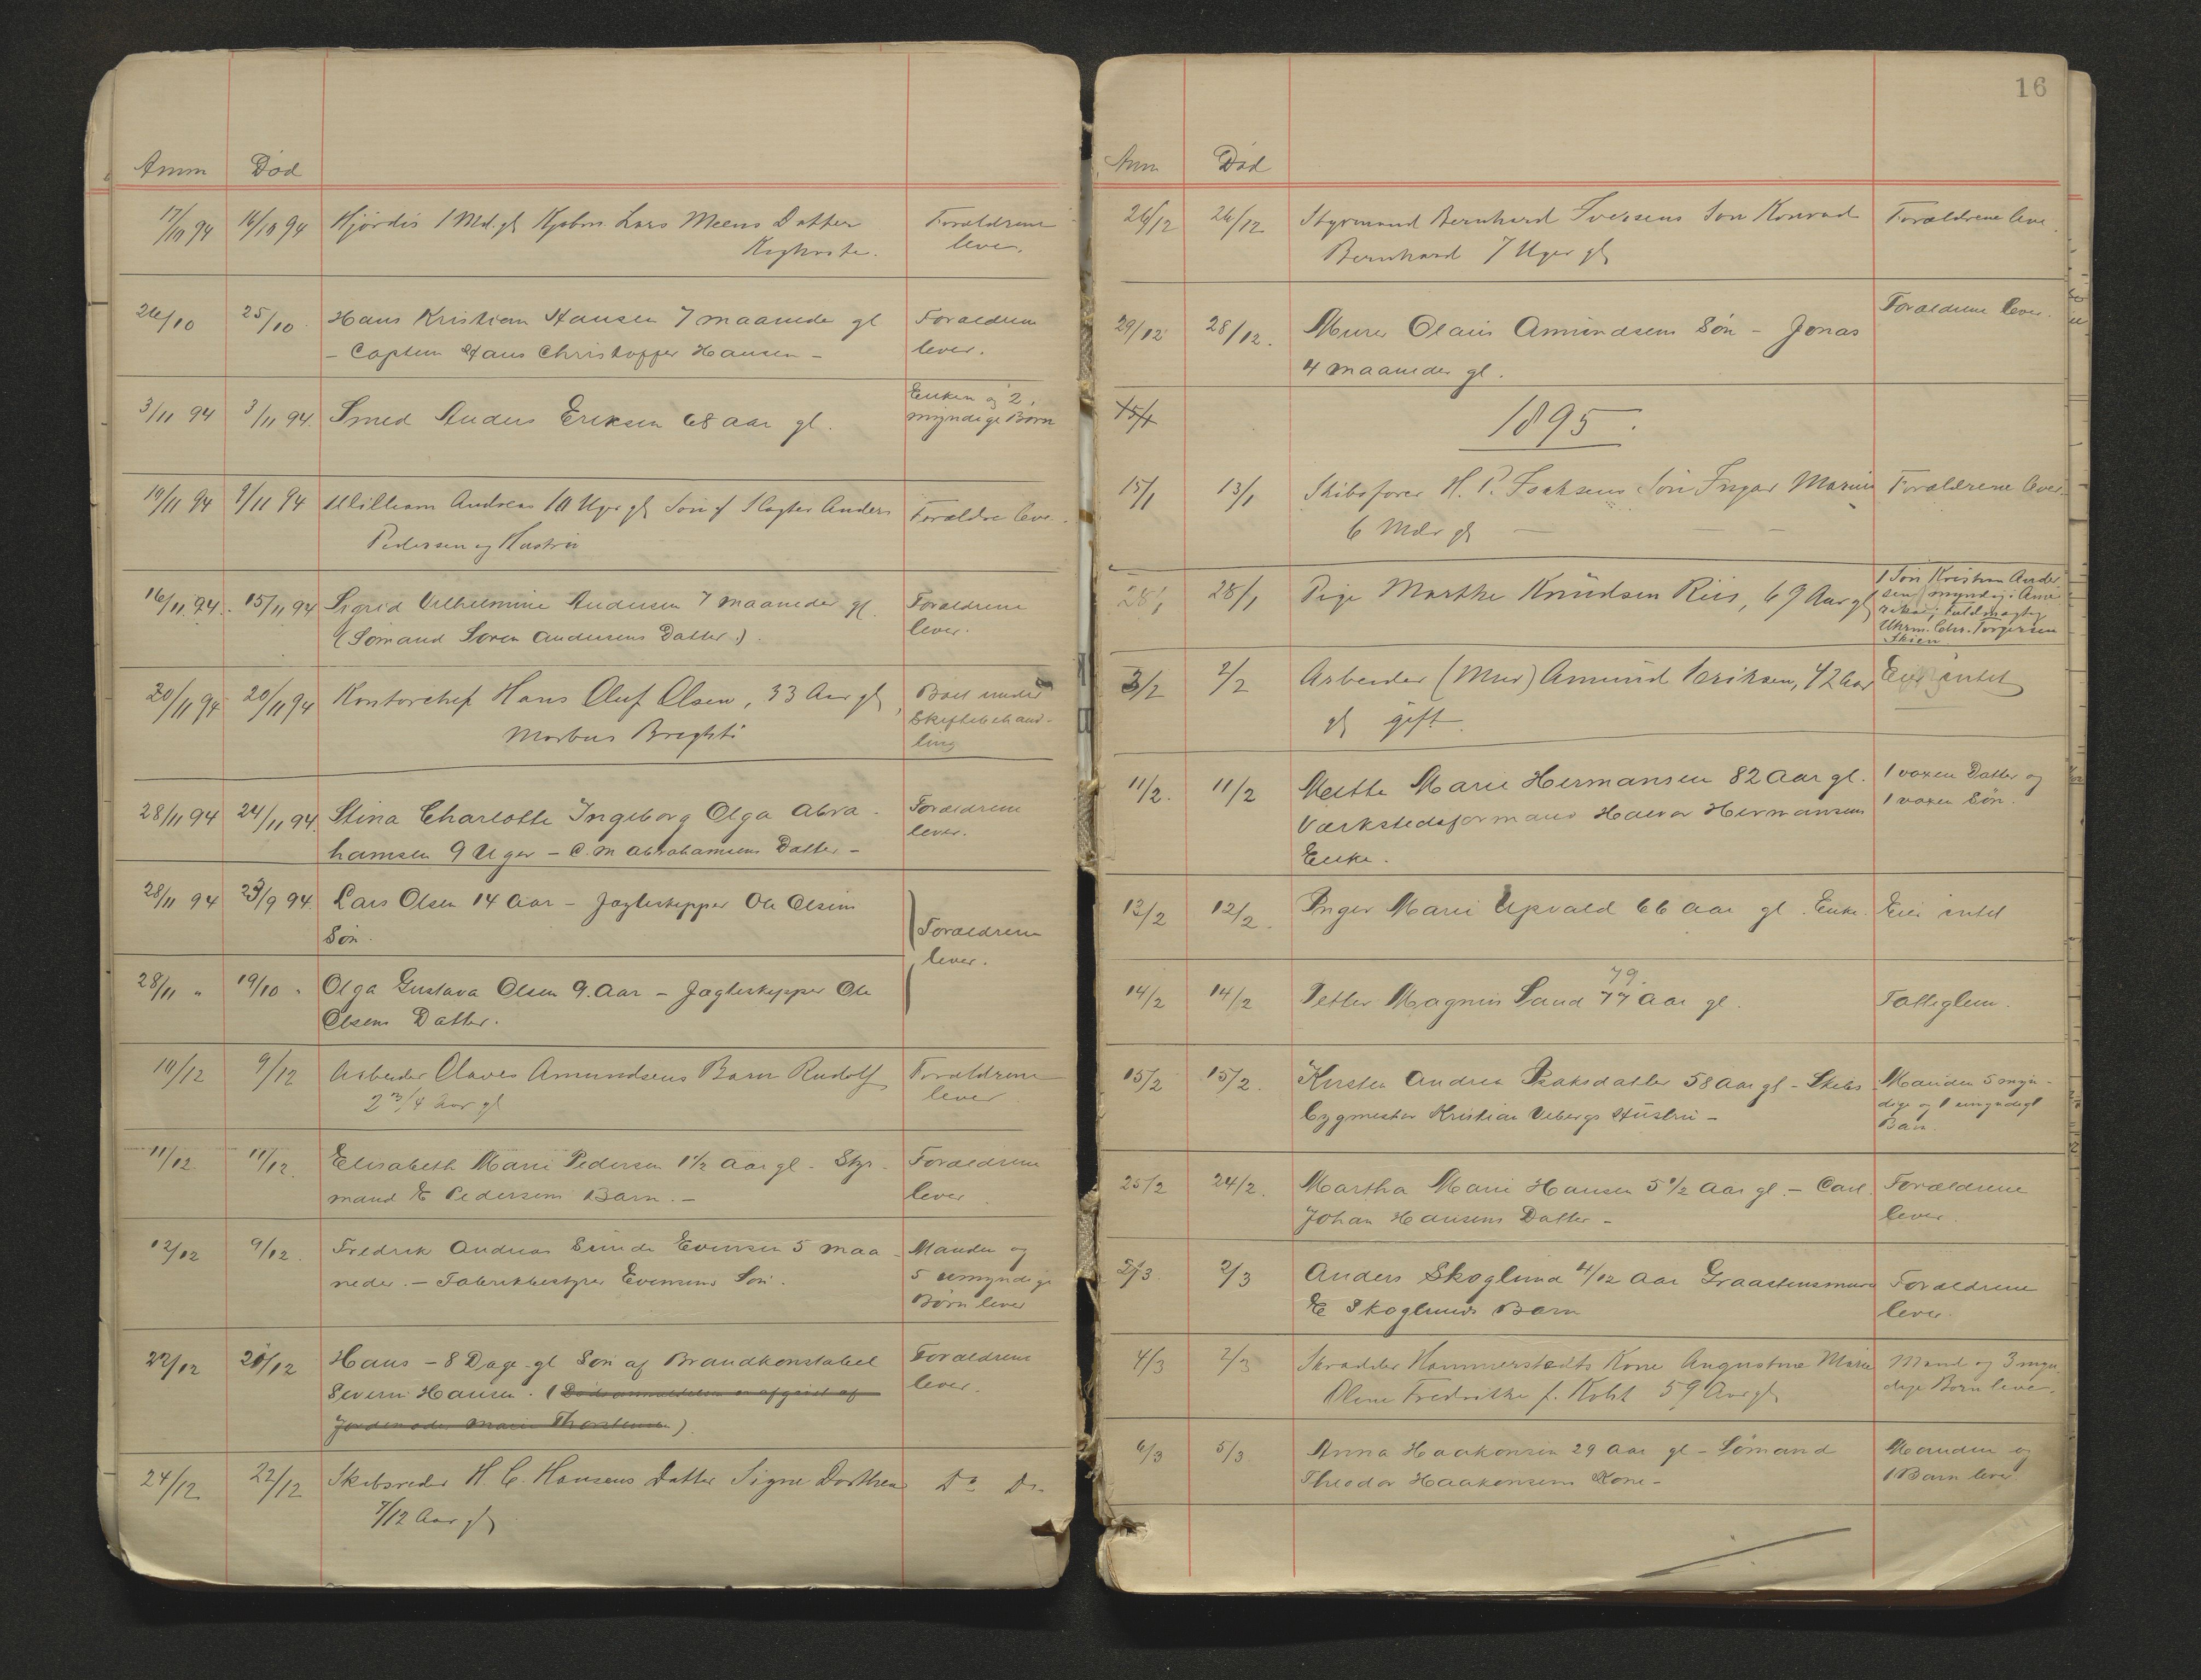 Anm Død
17/10 94 16/10 94 Hjördis 1 Md. gl Kjøbm. Lars Meens Datter Forældrene
Kighoste. lever.
26/10 25/10 Hans Kristian Hansen 7 maaneder gl Forældrene
- Captein Hans Christoffer Hansen - lever.
3/11 94 3/11 94. Smed Anders Eriksen 68 aar gl. Enken og 2
myndige Børn
10/11 94 9/11 94 William Andreas 10 Uger gl Søn af Slagter Anders Forældre leve.
Pedersen og Hustru
16/11 94. 15/11 94 Sigrid Vilhelmine Andersen 7 maaneder gl. Forældrene
(Sømand Søren Andersens Datter). lever.
20/11 94 20/11 94 Kontorchef Hans Oluf Olsen, 33 Aar gl, Boet under
Morbus Brightii Skiftebehand-
ling
28/11 94 24/11 94. Stina Charlotte Ingeborg Olga Abra- Forældrene
hamsen 9 Uger - C. M. Abrahamsens Datter - lever.
28/11 94 23/9 94. Lars Olsen 14 Aar - Jagtskipper Ole Olsens
Søn. Forældrene
lever.
28/11 " 19/10 " Olga Gustava Olsen 9. Aar - Jagtskipper Ole
Olsens Datter.
10/12 9/12 Arbeider Olaves Amundsens Barn Rudolf Forældrene
2 3/4 Aar gl lever
11/12 11/12. Elisabeth Marie Pedersen 1 1/2 Aar gl - Styr- Forældrene
mand E Pedersens Barn. - lever
12/12 9/12. Fredrik Andreas Sunde Evensen 5 maa- Manden og
neder. - Fabrikbestyrer Evensens Søn. 5 umyndige
Børn lever
22/12 20/12 Hans - 8 Dage gl Søn af Brandkonstabel Forældrene
Severin Hansen. (Dødsanmeldelsen er afgivet af lever.
Jordemoder Marie Thorstensen)
24/12 22/12 Skibsreder H. C. Hansens Datter Signe Dorthea Do Do
7/12 Aar gl
16
Anm Død
26/12 26/12 Styrmand Bernhard Iversens Søn Konrad Forældrene leve.
Bernhard 7 Uger gl
29/12 28/12. Murer Olaus Amundsens Søn - Jonas Forældrene lever.
4 maaneder gl.
15/1 1895.
15/1 13/1 Skibsfører H. P. Isaksens Søn Ingar Marius Forældrene lever.
6 Mdr gl
28/1 28/1 Pige Marthe Knudsen Riis, 69 Aar gl 1 Søn Kristian Ander
sen myndig i Ame
rika; fuldmægtig
Uhrm. Chr. Torgersen
Skien
3/2 2/2 Arbeider (Mur) Amund Eriksen, 42 Aar Eier intet
gl gift.
11/2. 11/2 Mette Marie Hermansen 82 Aar gl. 1 voxen Datter og
Værkstedsformand Halvor Hermansens 1 voxen Søn.
Enke.
13/2 12/2. Inger Marie Upvald 66 Aar gl. Enke. Eier intet
79.
14/2 14/2 Petter Magnus Sand 77 Aar gl. Fattiglem.
15/2 15/2. Kirsten Andrea Isaksdatter 58 Aar gl - Skibs Manden 5 myn-
bygmester Kristian Vebergs Hustru - dige og 1 umyndigt
Barn.
25/2 24/2. Martha Marie Hansen 5 1/2 Aar gl. - Carl Forældrene
Johan Hansens Datter - lever.
2/3. 2/3 Anders Skoglund 4/12 Aar Graastensmurer Forældrene
E Skoglunds Barn lever.
4/3 2/3 Skrædder Hammerstedts Kone Augustine Marie Mand og 3 myn-
Oline Fredrikke f. Holst 59 Aar gl dige Børn lever.
6/3 5/3. Anna Haakonsen 29 Aar gl - Sømand Manden og
Theodor Haakonsens Kone - 1 Barn lever